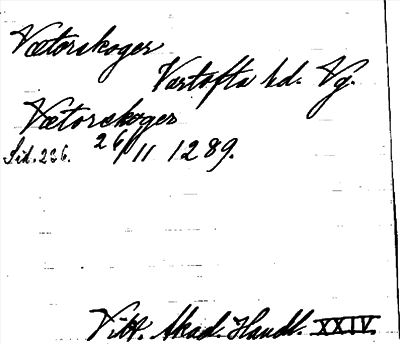 Vætorskoger
Vartofta hd. Vg.
Vætorskoger
Sid. 226. 26/11 1289.
Vitt. Akad. Handl. XXIV.